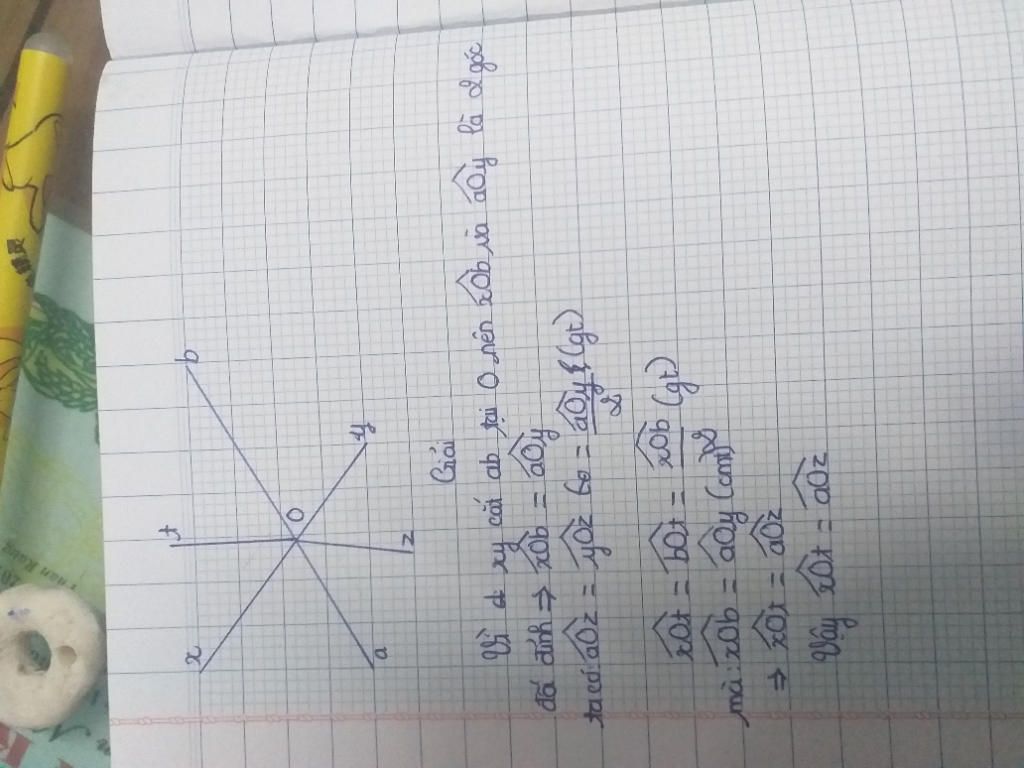 x
t
b
O
y
a
z
Giải
Vì xy cắt ab tại O nên xOb và aOy là 2 góc
đối đỉnh ⇒ xOb = aOy
ta có: aOz = yOz = aOy/2 (gt)
xOt = bOt = xOb/2 (gt)
mà: xOb = aOy (cmt)
⇒ xOt = aOz
Vậy xOt = aOz